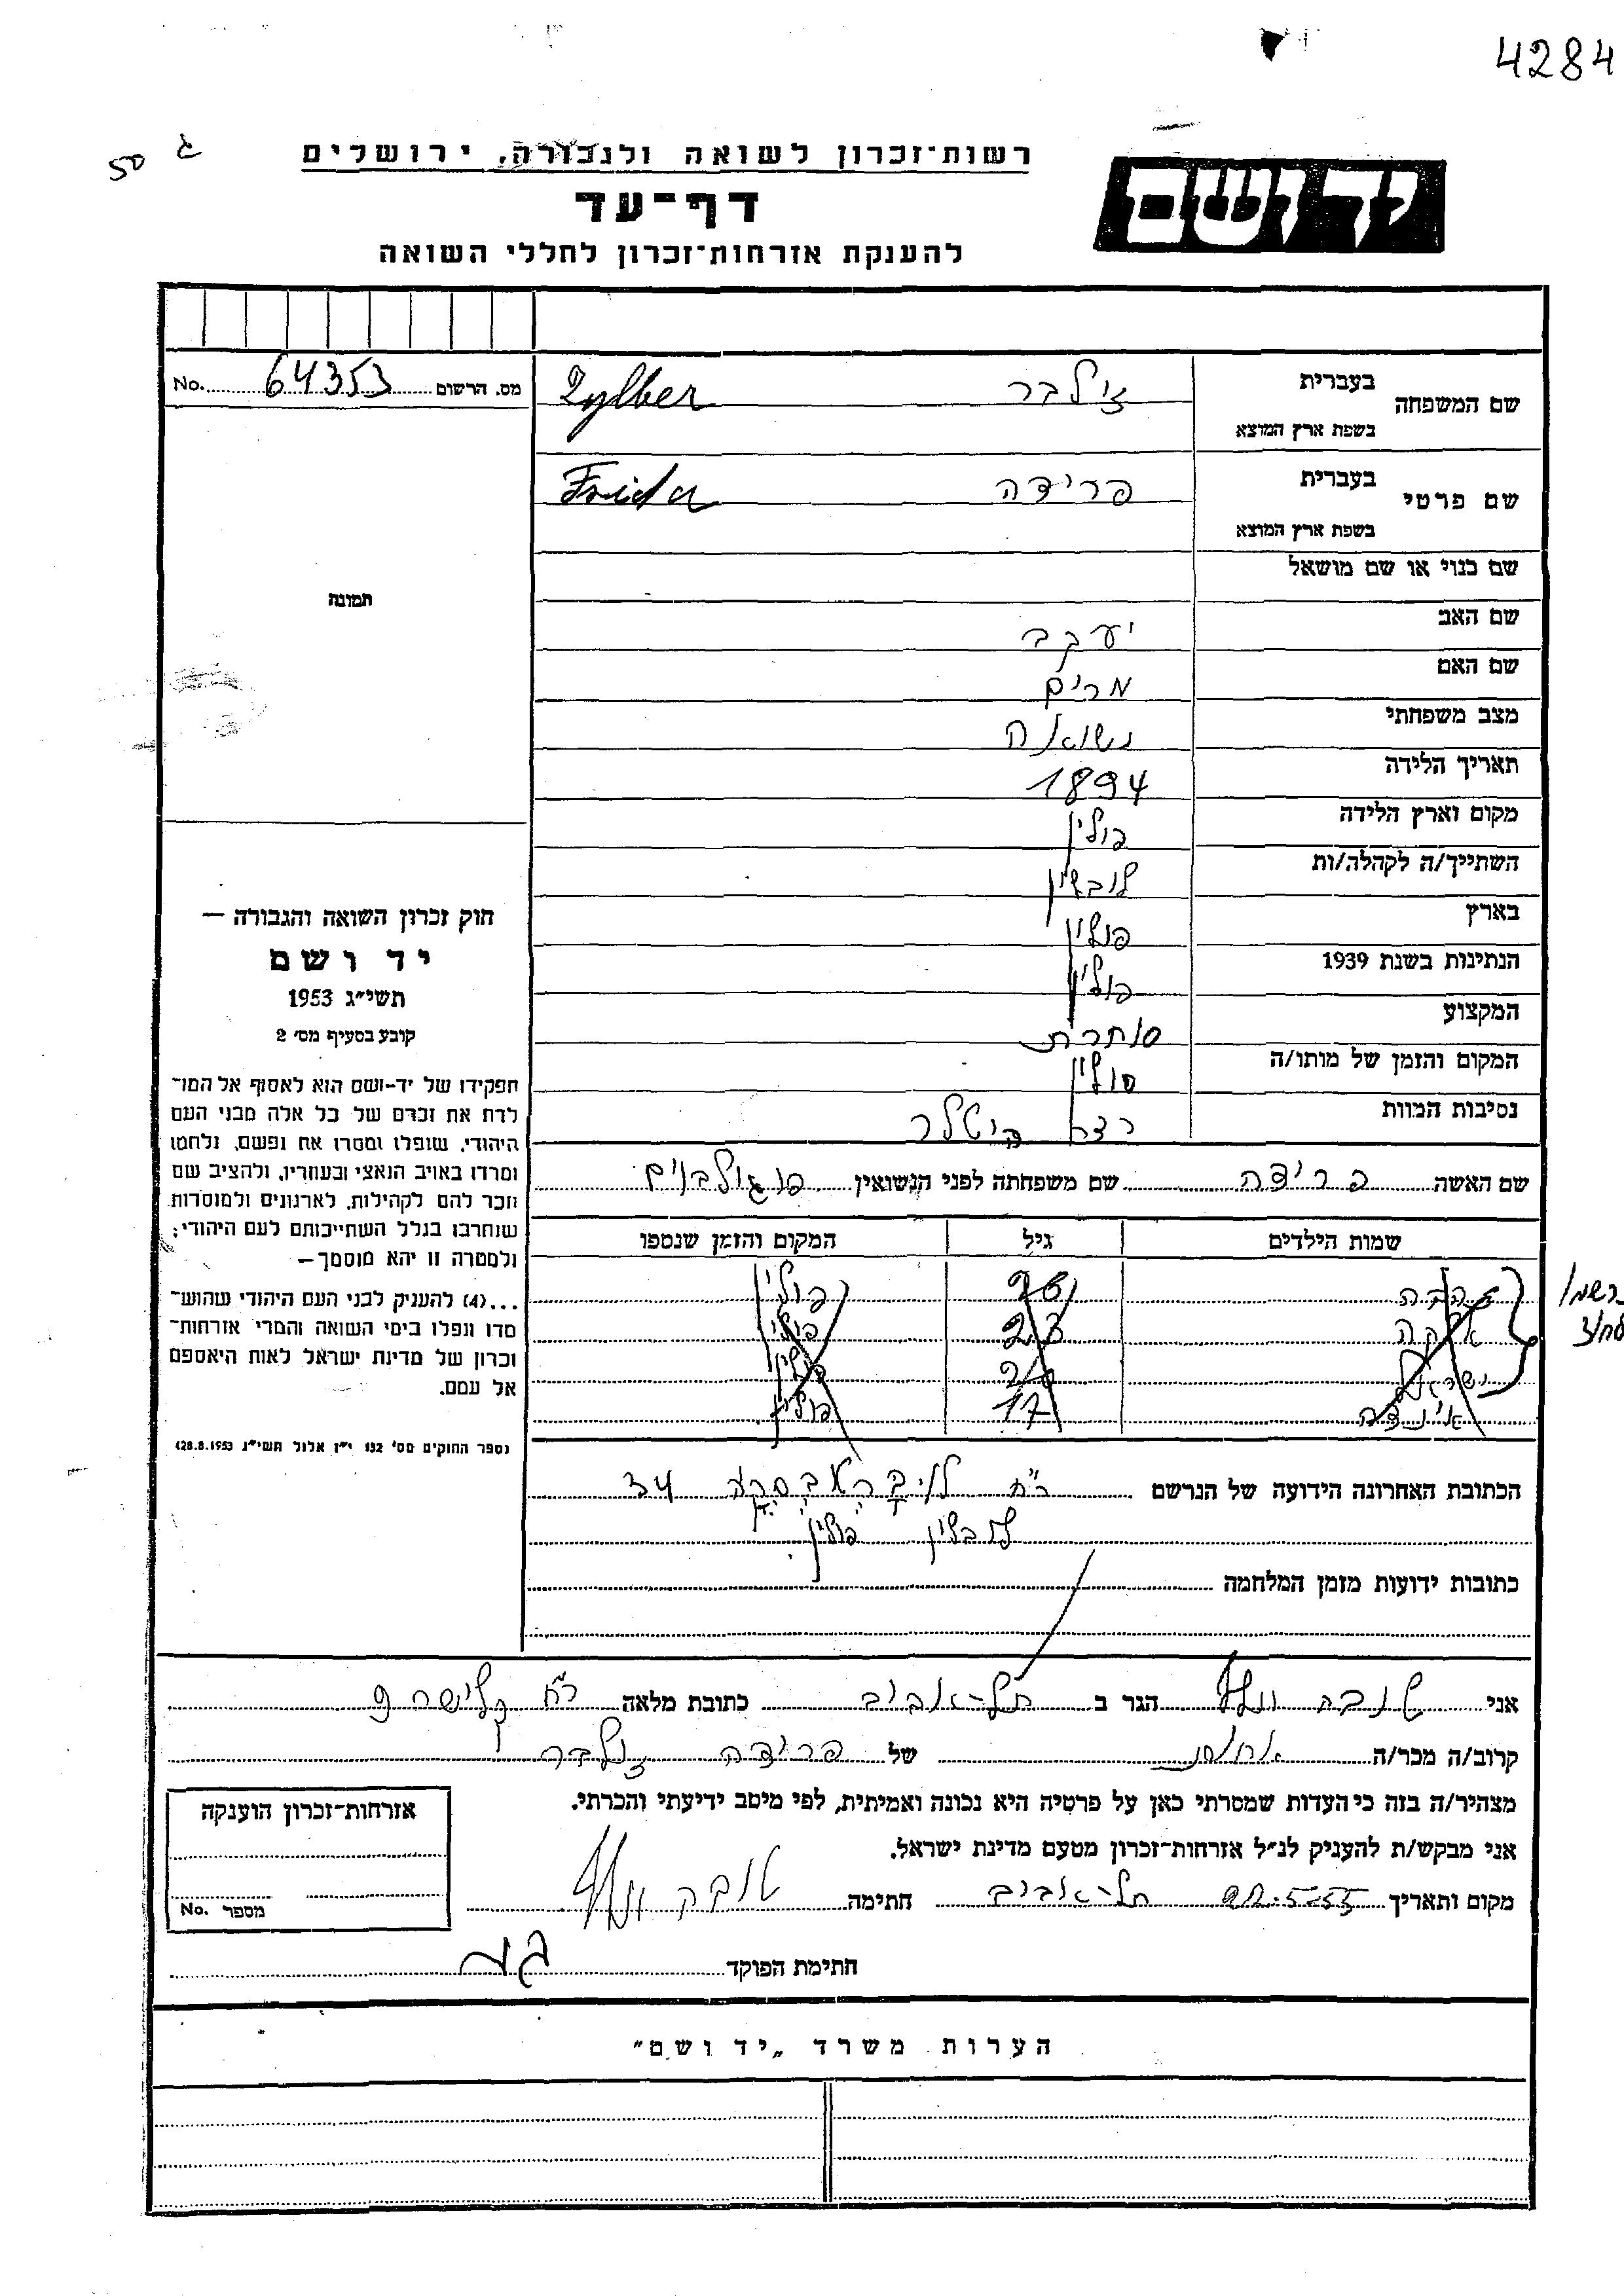 4284
50 ג
רשות־זכרון לשואה ולגבורה, ירושלים
יד ושם
דף־עד
להענקת אזרחות־זכרון לחללי השואה
מס. הרשום 64353 No.
שם המשפחה בעברית זילבר Zylber
בשפת ארץ המוצא
שם פרטי בעברית פרידה Frida
בשפת ארץ המוצא
שם כנוי או שם מושאל
שם האב יעקב
שם האם מרים
מצב משפחתי נשואה
תאריך הלידה 1894
מקום וארץ הלידה פולין
השתייך/ה לקהלה/ות לובלין
בארץ פולין
הנתינות בשנת 1939 פולין
המקצוע סוחרת
המקום והזמן של מותו/ה פולין
נסיבות המוות היטלר
שם האשה פרידה שם משפחתה לפני הנשואין
שמות הילדים גיל המקום והזמן שנספו
פולין
23 פולין
ישראל פולין
17 פולין
הכתובת האחרונה הידועה של הנרשם רח 34
לובלין פולין
כתובות ידועות מזמן המלחמה
תמונה
חוק זכרון השואה והגבורה —
יד ושם
תשי״ג 1953
קובע בסעיף מס׳ 2
תפקידו של יד־ושם הוא לאסוף אל המו־
לדת את זכרם של כל אלה מבני העם
היהודי, שנפלו ומסרו את נפשם, נלחמו
ומרדו באויב הנאצי ובעוזריו, ולהציב שם
וזכר להם לקהילות, לארגונים ולמוסדות
שנחרבו בגלל השתייכותם לעם היהודי;
ולמטרה זו יהא מוסמך —
...(4) להעניק לבני העם היהודי שהוש־
מדו ונפלו בימי השואה והמרי אזרחות־
זכרון של מדינת ישראל לאות היאספם
אל עמם.
(ספר החוקים מס׳ 132 י״ז אלול תשי״ג 28.8.1953)
אני טובה וולף הגר ב תל־אביב כתובת מלאה רח קלישר 9
קרוב/ה מכר/ה אחות של פרידה זילבר
מצהיר/ה בזה כי העדות שמסרתי כאן על פרטיה היא נכונה ואמיתית, לפי מיטב ידיעתי והכרתי.
אני מבקש/ת להעניק לנ״ל אזרחות־זכרון מטעם מדינת ישראל.
מקום ותאריך תל־אביב חתימה טובה וולף
חתימת הפוקד
אזרחות־זכרון הוענקה
מספר No.
הערות משרד „יד ושם"